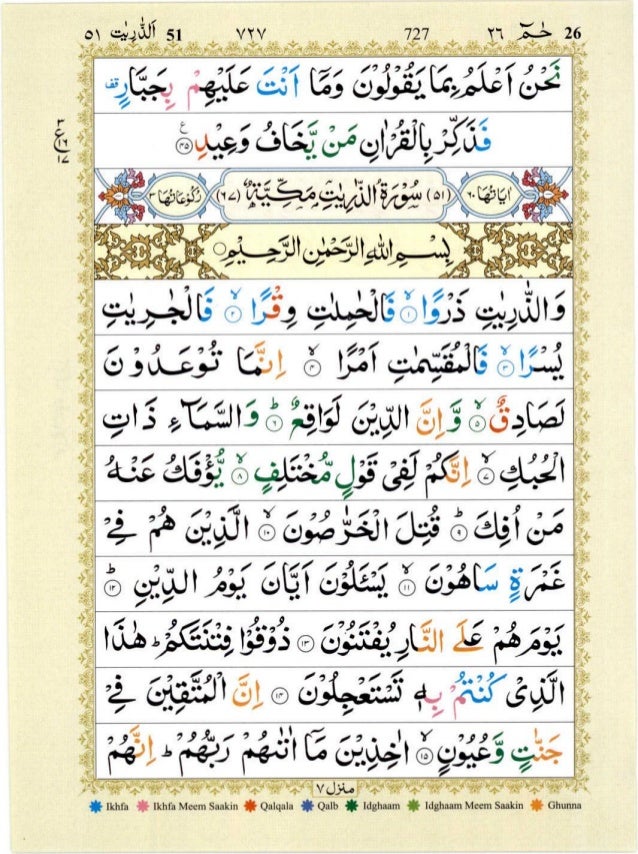 ٥١ اَلذّٰرِيٰت 51 ٧٢٧ 727 ٢٦ حٰمٓ 26
نَحْنُ اَعْلَمُ بِمَا يَقُوْلُوْنَ وَمَآ اَنْتَ عَلَيْهِمْ بِجَبَّارٍ ۟قف
فَذَكِّرْ بِالْقُرْاٰنِ مَنْ يَّخَافُ وَعِيْدِ ۟ع ٤٥
٣ ع ١٦ ١٧
اٰيَاتُهَا ٦٠ (٥١) سُوْرَةُ الذّٰرِيٰتِ مَكِّيَّةٌ (٦٧) رُكُوْعَاتُهَا ٣
بِسْمِ اللّٰهِ الرَّحْمٰنِ الرَّحِيْمِ
وَالذّٰرِيٰتِ ذَرْوًا ۙ١ فَالْحٰمِلٰتِ وِقْرًا ۙ٢ فَالْجٰرِيٰتِ
يُسْرًا ۙ٣ فَالْمُقَسِّمٰتِ اَمْرًا ۙ٤ اِنَّمَا تُوْعَدُوْنَ
لَصَادِقٌ ۙ٥ وَّاِنَّ الدِّيْنَ لَوَاقِعٌ ؕ٦ وَالسَّمَآءِ ذَاتِ
الْحُبُكِ ۙ٧ اِنَّكُمْ لَفِيْ قَوْلٍ مُّخْتَلِفٍ ۙ٨ يُّؤْفَكُ عَنْهُ
مَنْ اُفِكَ ؕ٩ قُتِلَ الْخَرّٰصُوْنَ ۙ١٠ الَّذِيْنَ هُمْ فِيْ
غَمْرَةٍ سَاهُوْنَ ۙ١١ يَسْـَٔلُوْنَ اَيَّانَ يَوْمُ الدِّيْنِ ؕ١٢
يَوْمَ هُمْ عَلَى النَّارِ يُفْتَنُوْنَ ١٣ ذُوْقُوْا فِتْنَتَكُمْ ؕ هٰذَا
الَّذِيْ كُنْتُمْ بِهٖ تَسْتَعْجِلُوْنَ ١٤ اِنَّ الْمُتَّقِيْنَ فِيْ
جَنّٰتٍ وَّعُيُوْنٍ ۙ١٥ اٰخِذِيْنَ مَآ اٰتٰىهُمْ رَبُّهُمْ ؕ اِنَّهُمْ
منزل ٧
Ikhfa Ikhfa Meem Saakin Qalqala Qalb Idghaam Idghaam Meem Saakin Ghunna